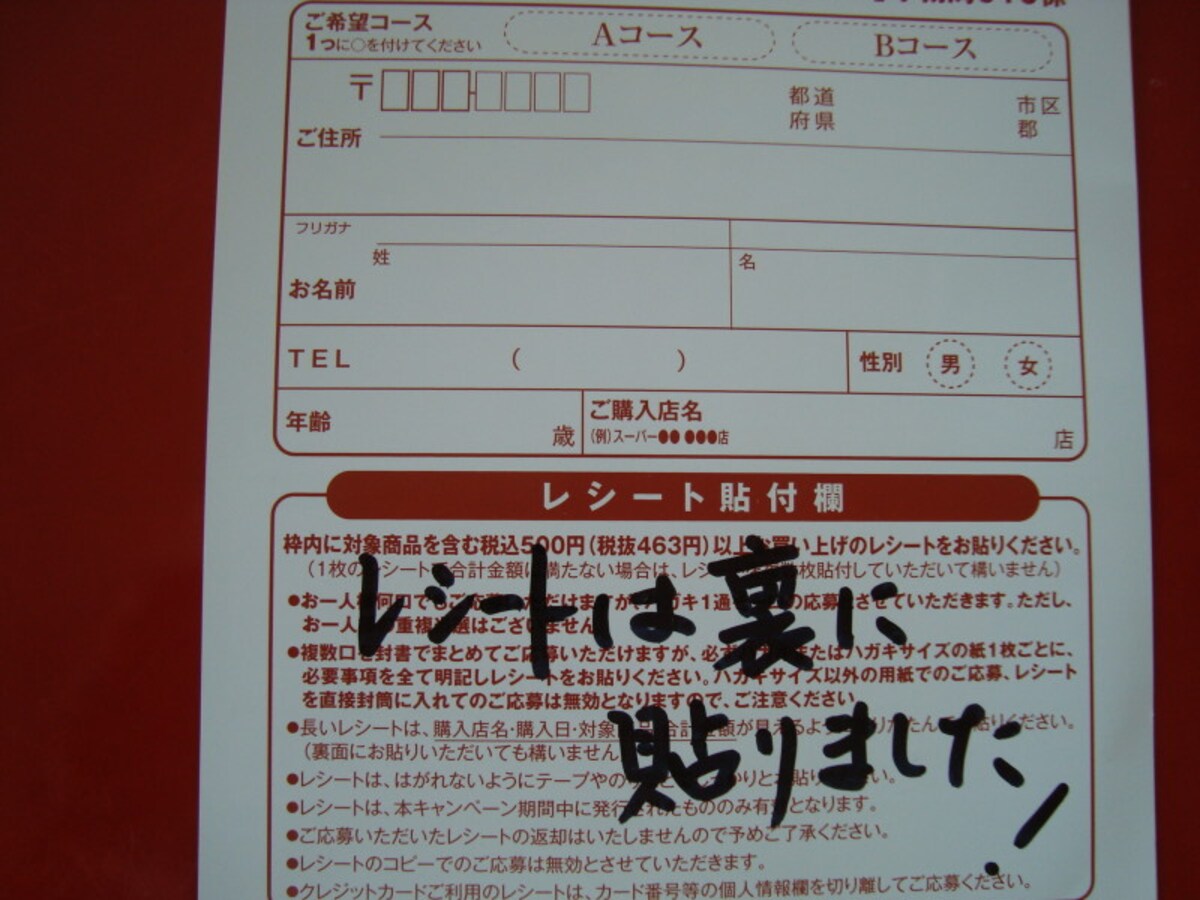 ご希望コース
1つに○を付けてください
Aコース
Bコース
〒
都道
府県
市区
郡
ご住所
フリガナ
姓
名
お名前
TEL ( )
性別 男 女
年齢 歳
ご購入店名
(例)スーパー●● ●●●店
店
レシート貼付欄
枠内に対象商品を含む税込500円(税抜463円)以上お買い上げのレシートをお貼りください。
レシートは裏に
貼りました!
●複数口を封書でまとめてご応募いただけますが、必ず
またはハガキサイズの紙1枚ごとに、
必要事項を全て明記しレシートをお貼りください。ハガキサイズ以外の用紙でのご応募、レシート
を直接封筒に入れてのご応募は無効となりますので、ご注意ください
●長いレシートは、購入店名・購入日・対象
(裏面にお貼りいただいても構いません
●レシートは、はがれないようにテープやの
●レシートは、本キャンペーン期間中に発行されたもののみ有効となります。
●ご応募いただいたレシートの返却はいたしませんので予めご了承ください。
●レシートのコピーでのご応募は無効とさせていただきます。
●クレジットカードご利用のレシートは、カード番号等の個人情報欄を切り離してご応募ください。